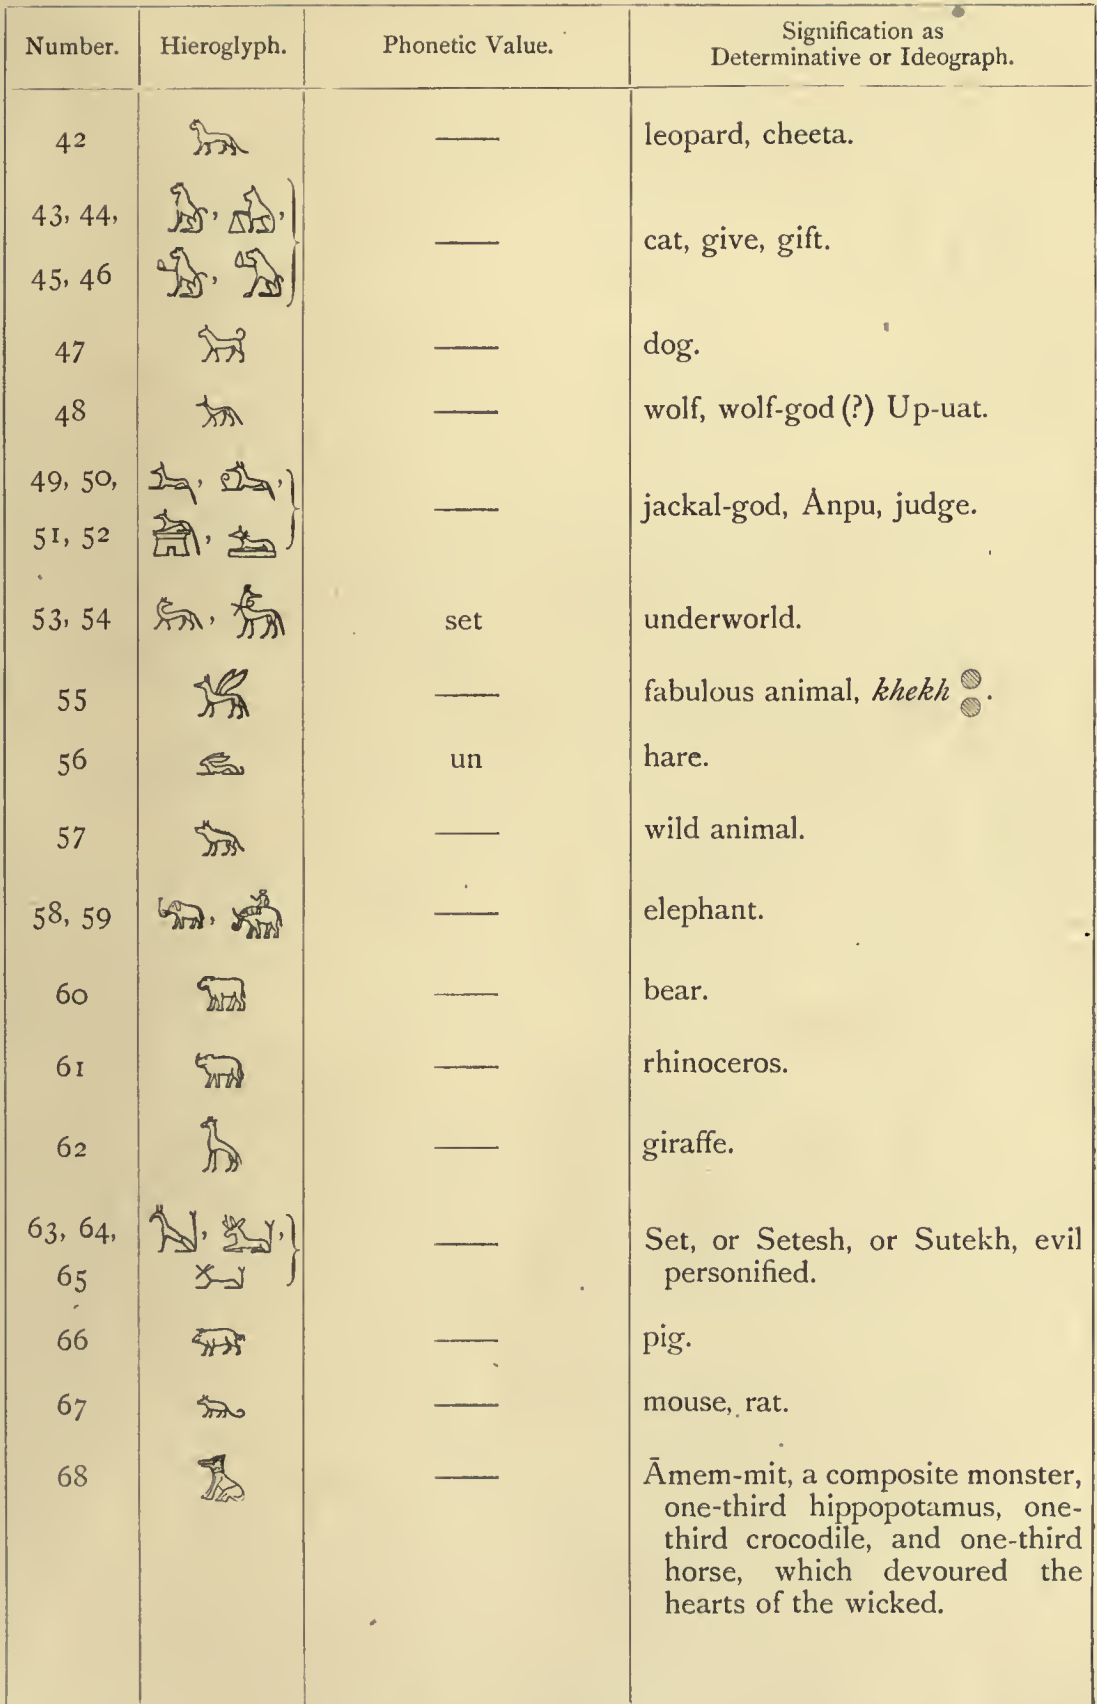 Number. Hieroglyph. Phonetic Value. Signification as Determinative or Ideograph.
42 —— leopard, cheeta.
43, 44,
45, 46 —— cat, give, gift.
47 —— dog.
48 —— wolf, wolf-god (?) Up-uat.
49, 50,
51, 52 —— jackal-god, Ȧnpu, judge.
53, 54 set underworld.
55 —— fabulous animal, khekh 𓐍𓐍.
56 un hare.
57 —— wild animal.
58, 59 —— elephant.
60 —— bear.
61 —— rhinoceros.
62 —— giraffe.
63, 64,
65 —— Set, or Setesh, or Sutekh, evil
personified.
66 —— pig.
67 —— mouse, rat.
68 —— Āmem-mit, a composite monster,
one-third hippopotamus, one-
third crocodile, and one-third
horse, which devoured the
hearts of the wicked.